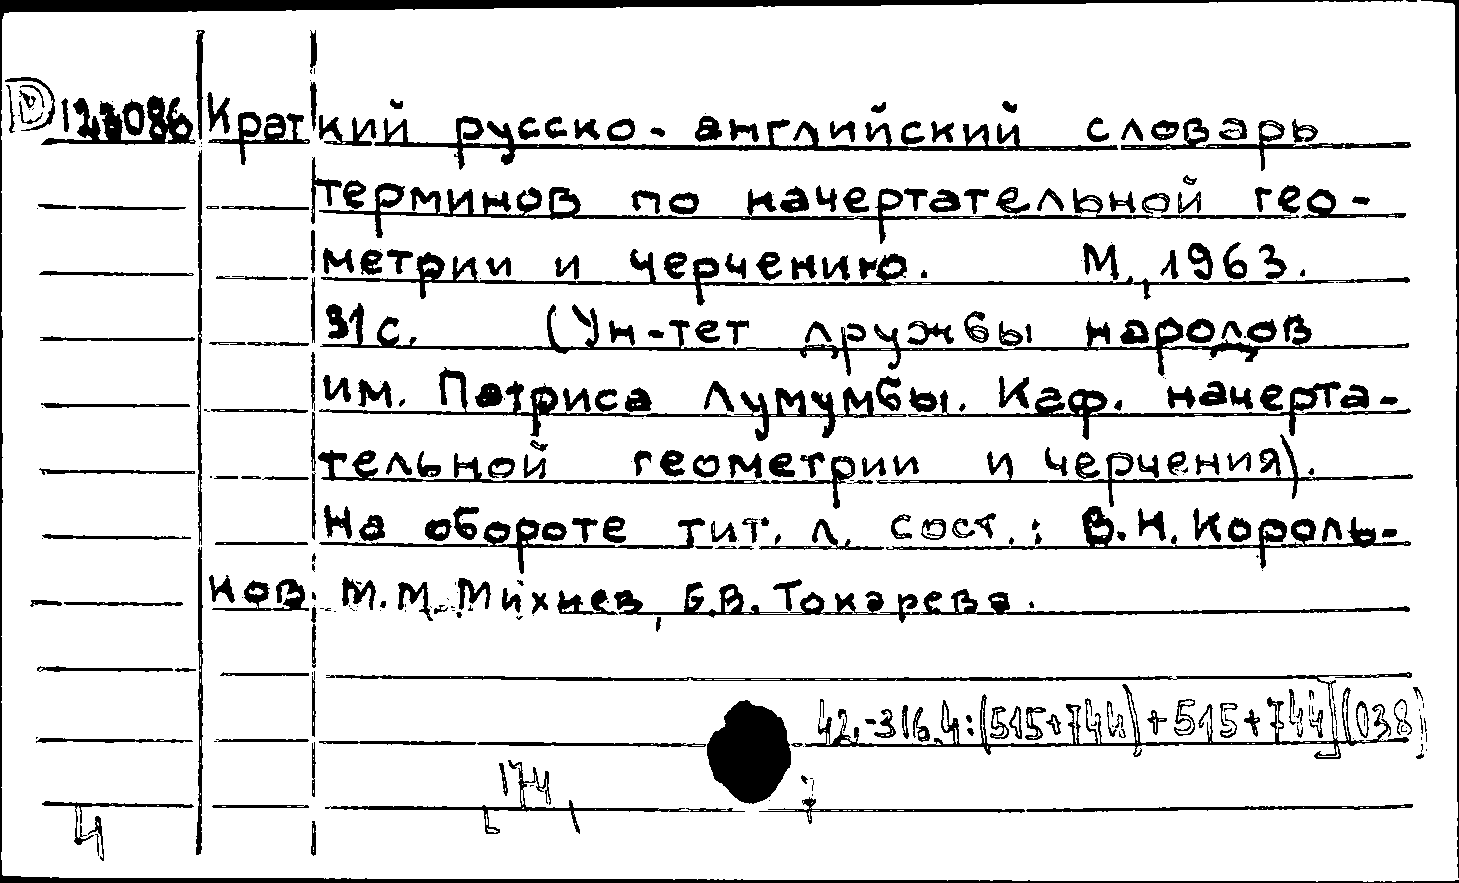 D 123086 Краткий русско-английский словарь
терминов по начертательной гео-
метрии и черчению. М., 1963.
31 с. (Ун-тет дружбы народов
им. Патриса Лумумбы. Каф. начерта-
тельной геометрии и черчения).
На обороте тит. л. сост.: В.Н. Король-
ков, М.М. Михнев, Б.В. Токарева.
42.-316.4:(515+744)+515+744](038)
174
4